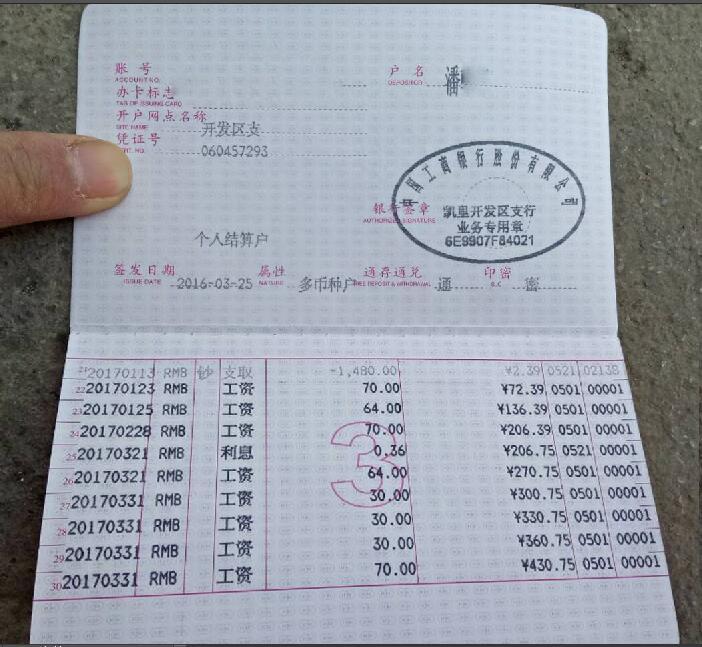 账号
ACCOUNT NO.
户名
DEPOSITOR
潘
办卡标志
TAG OF ISSUING CARD
开户网点名称
SITE NAME
开发区支
凭证号
060457293
中国工商银行股份有限公司
银行签章
AUTHORIZED SIGNATURE
凯里开发区支行
业务专用章
6E9907F84021
个人结算户
签发日期
ISSUE DATE
2016-03-25
属性
NATURE
多币种户
通存通兑
FREE DEPOSIT & WITHDRAWAL
通
印密
S.C
密
21 20170113 RMB 钞 支取 -1,480.00 ¥2.39 0521 02138
22 20170123 RMB 工资 70.00 ¥72.39 0501 00001
23 20170125 RMB 工资 64.00 ¥136.39 0501 00001
24 20170228 RMB 工资 70.00 ¥206.39 0501 00001
25 20170321 RMB 利息 0.36 ¥206.75 0521 00001
26 20170321 RMB 工资 64.00 ¥270.75 0501 00001
27 20170331 RMB 工资 30.00 ¥300.75 0501 00001
28 20170331 RMB 工资 30.00 ¥330.75 0501 00001
29 20170331 RMB 工资 30.00 ¥360.75 0501 00001
30 20170331 RMB 工资 70.00 ¥430.75 0501 00001
3